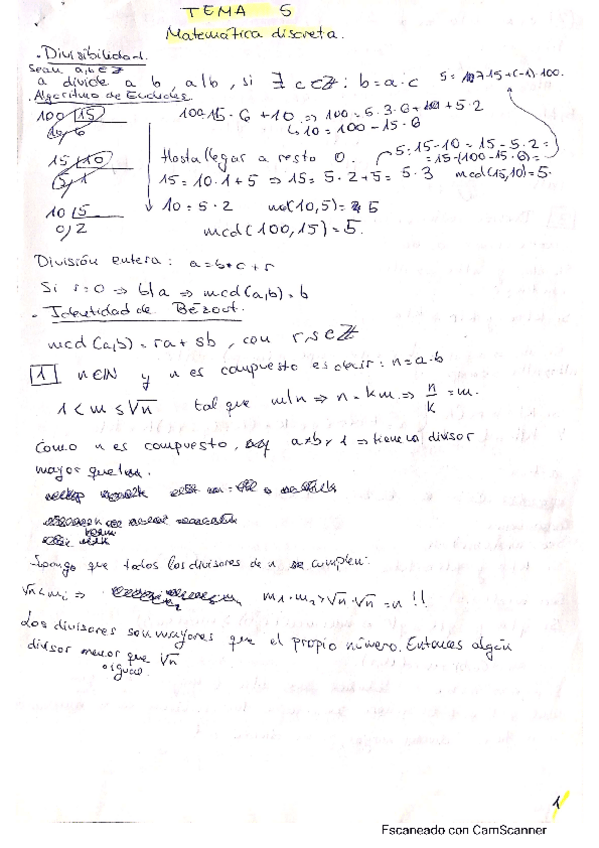 TEMA 5
Matemática discreta.
. Divisibilidad.
Sean a,b ∈ ℤ
a divide a b, a|b, si ∃ c ∈ ℤ : b = a·c
5 = 7·15 + (-1)·100.
. Algoritmo de Euclides
100 |15
10 6
100 = 15·6 + 10 ⇒ 100 = 5·3·6 + 5·2
↳ 10 = 100 - 15·6
15 |10
5 1
Hasta llegar a resto 0.
5 = 15 - 10 = 15 - 5·2 =
= 15 - (100 - 15·6) =
15 = 10·1 + 5 ⇒ 15 = 5·2 + 5 = 5·3
mcd(15,10) = 5.
10 |5
0 2
10 = 5·2
mcd(10,5) = 5
mcd(100,15) = 5.
División entera : a = b·c + r
Si r = 0 ⇒ b|a ⇒ mcd(a,b) = b
. Identidad de Bézout.
mcd(a,b) = ra + sb, con r,s ∈ ℤ
1 n ∈ ℕ y n es compuesto es decir : n = a·b
1 < m ≤ √n tal que m|n ⇒ n = k·m ⇒ n/k = m.
Como n es compuesto, a·b > 1 ⇒ tiene un divisor
mayor que 1.
Supongo que todos los divisores de n se cumplen:
√n < mi ⇒ m1·m2 > √n·√n = n !!
Los divisores son mayores que el propio número. Entonces algún
divisor menor que √n
o igual
1
Escaneado con CamScanner